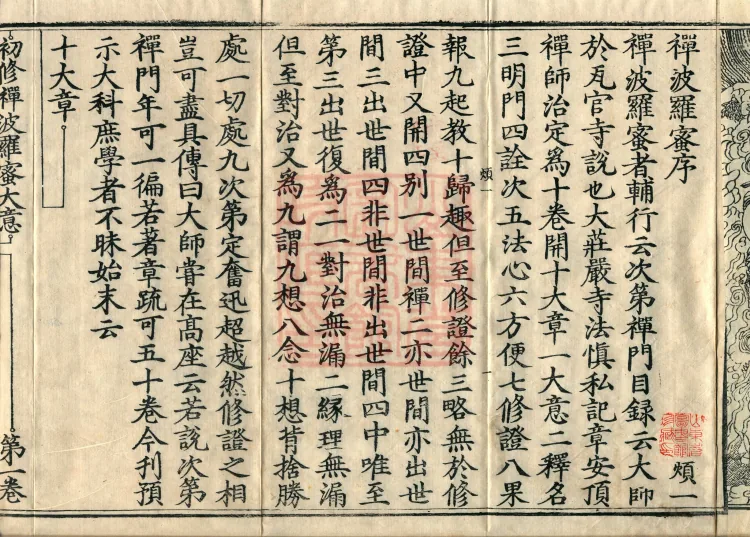 禪波羅蜜序 煩一
禪波羅蜜者輔行云次第禪門目録云大師
於瓦官寺說也大莊嚴寺法慎私記章安頂
禪師治定爲十卷開十大章一大意二釋名
三明門四詮次五法心六方便七修證八果
煩一
報九起教十歸趣但至修證餘三略無於修
證中又開四別一世間禪二亦世間亦出世
間三出世間四非世間非出世間四中唯至
第三出世復爲二一對治無漏二緣理無漏
但至對治又爲九謂九想八念十想背捨勝
處一切處九次第定奮迅超越然修證之相
豈可盡具傳曰大師嘗在高座云若說次第
禪門年可一徧若著章疏可五十卷今刋預
示大科庶學者不昧始末云
十大章
初修禪波羅蜜大意 第一卷